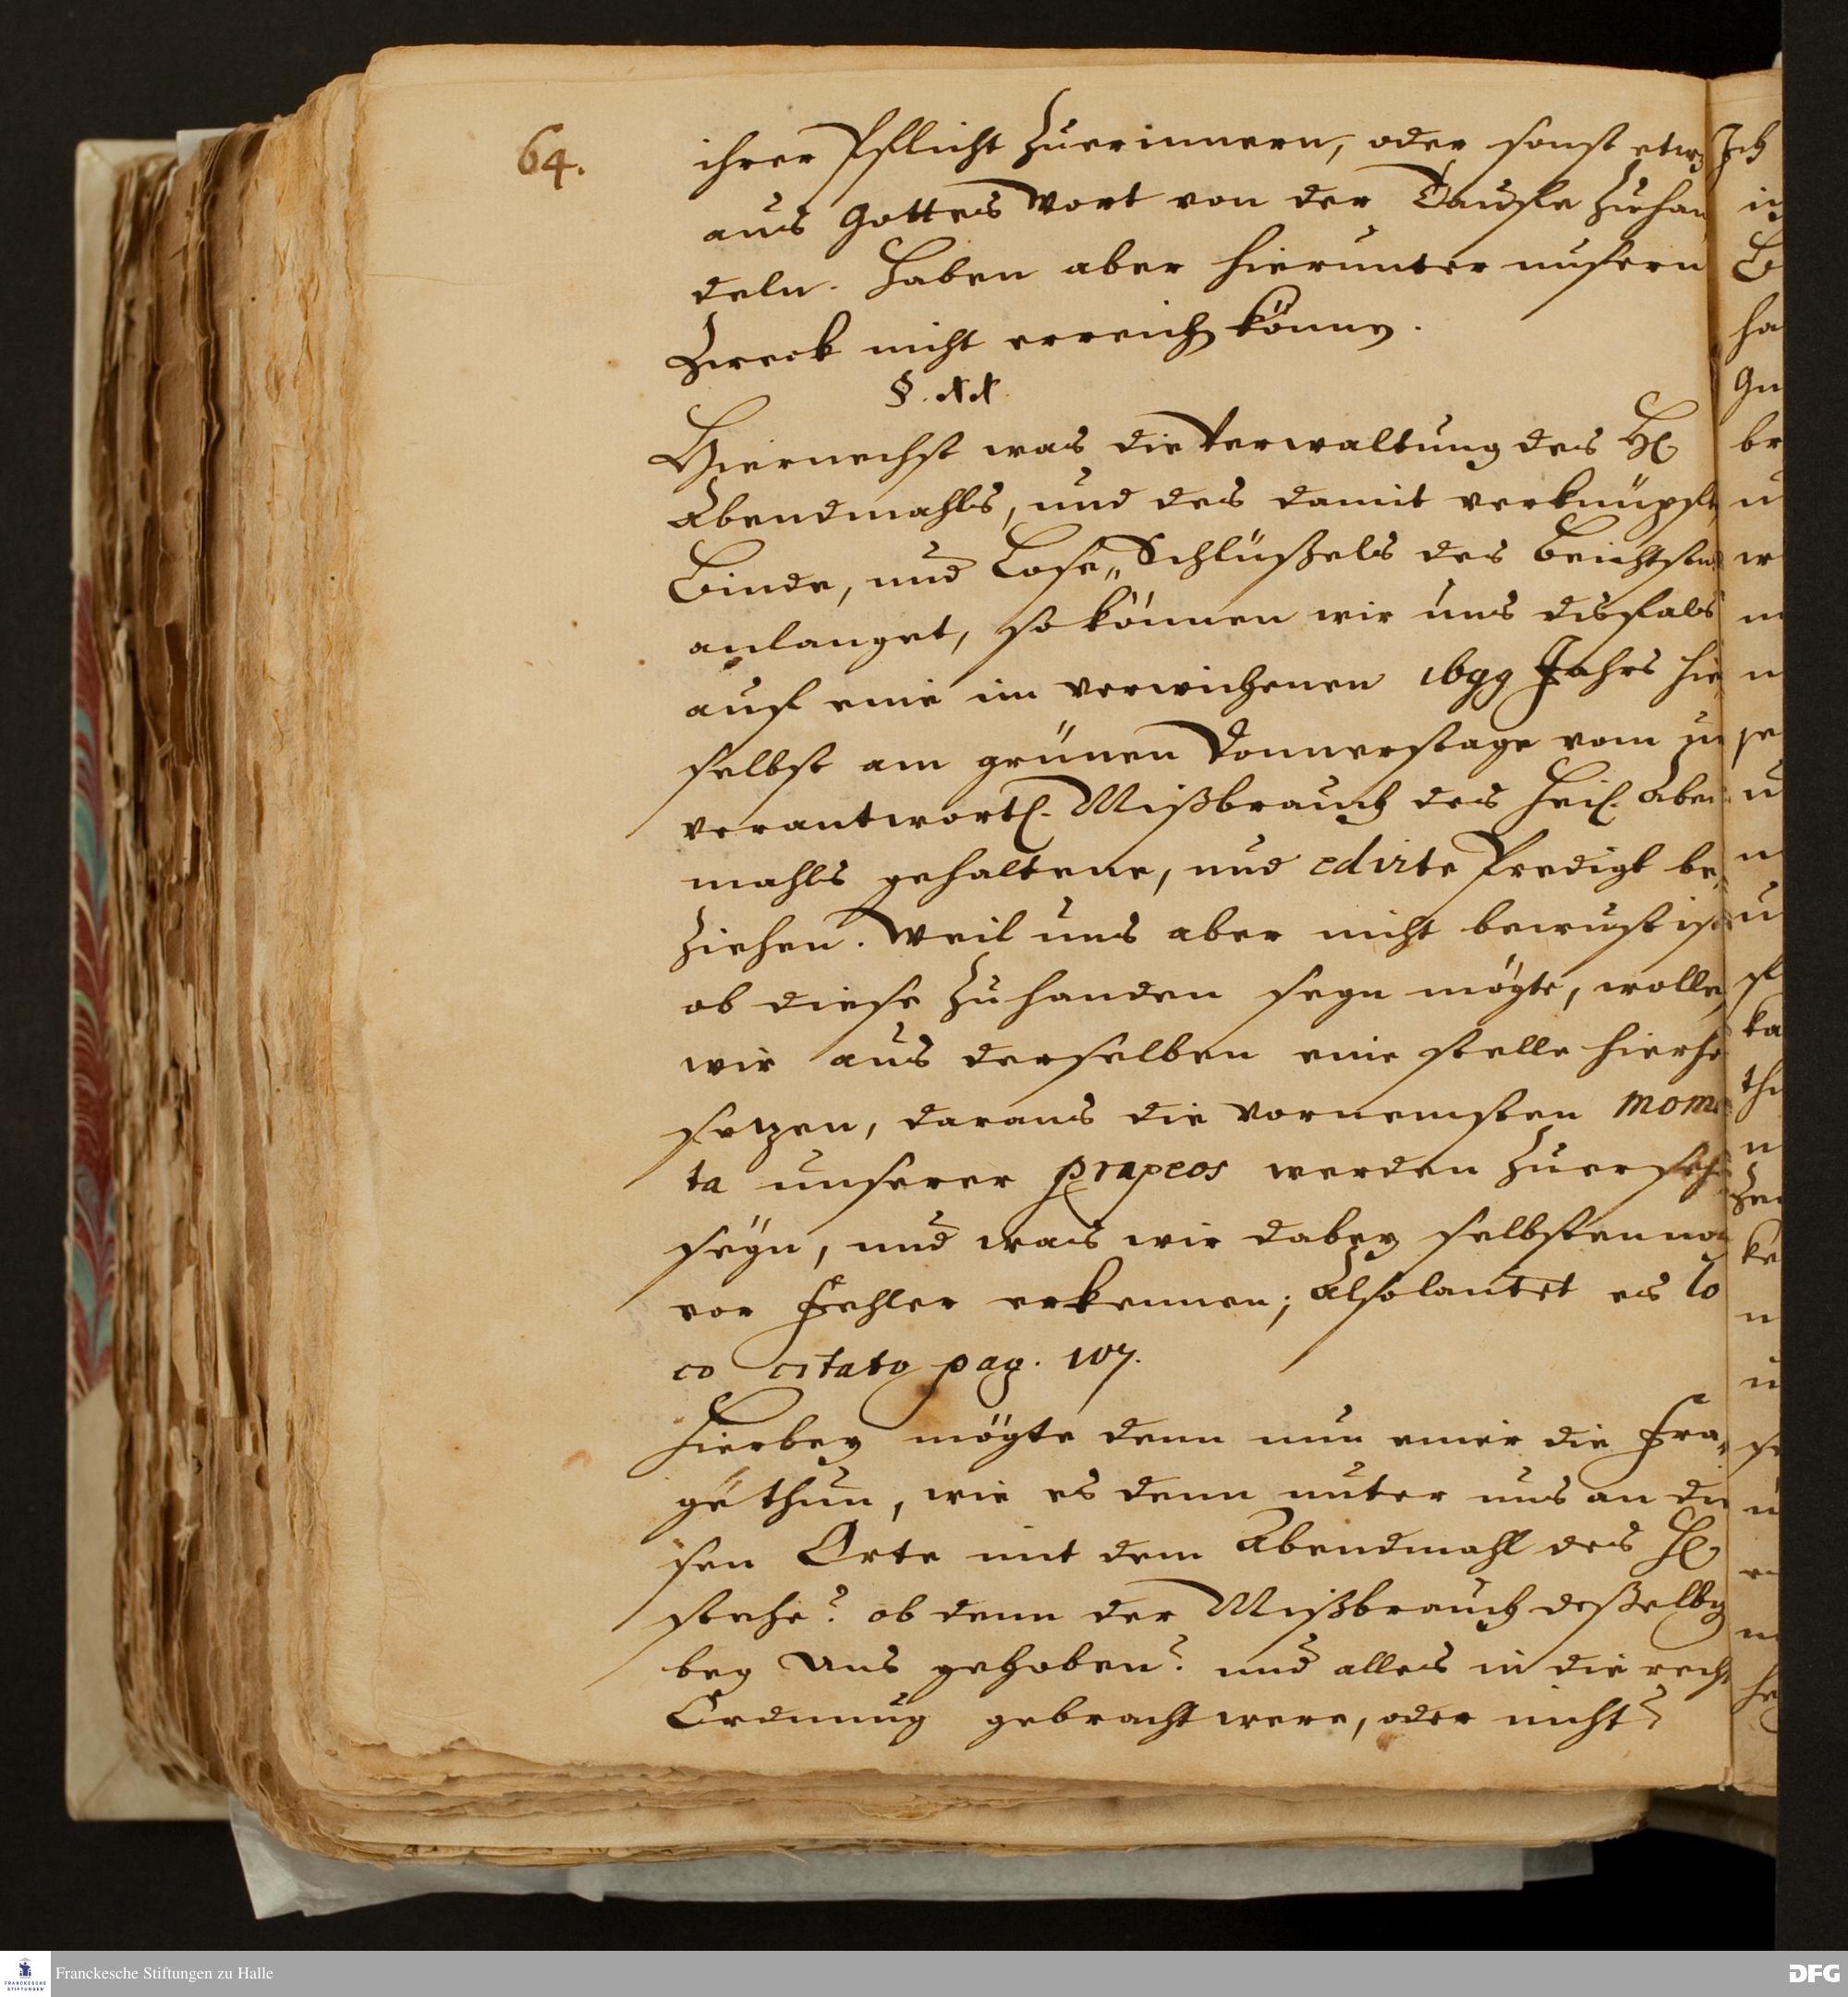 64.
ihrer Pflicht zuerinnern, oder sonst etwz
aus Gottes Wort von der Tauffe zuhan
deln. Haben aber hierunter unsern
Zweck nicht erreichen können.
§. XX.
Hiernechst was die Verwaltung des Hl.
Abendmahls, und des damit verknüpfte
Binde, und Löse„ Schlüßels des Beichtstu
anlanget, so können wir uns disfals
auf eine im verwichenen 1699 Jahrs hie
selbst am grünen Donnerstage vom un
verantwortl. Mißbrauch des heil. Aben
mahls gehaltene, und edirte Predigt be„
ziehen. Weil uns aber nicht bewust ist
ob diese zuhanden seyn mögte, wollen
wir aus derselben eine stelle hierhe
setzen, daraus die vornemsten mome
ta unserer praxeos werden zuersehe
seyn, und was wir dabey selbsten noch
vor Fehler erkennen; Also lautet es lo
co citato pag. 107.
Hierbey mögte denn nun einer die Fra„
ge thun, wie es denn unter uns an die
sen Orte mit dem Abendmahl des H.
stehe? ob denn der Mißbrauch deßelben
bey Uns gehoben? und alles in die recht
Ordnung gebracht were, oder nicht?
Ich
in
ha
br
u
w
n
se
u
n
u
ka
n
ke
n
u
u
n
Franckesche Stiftungen zu Halle
FRANCKESCHE STIFTUNGEN
DFG